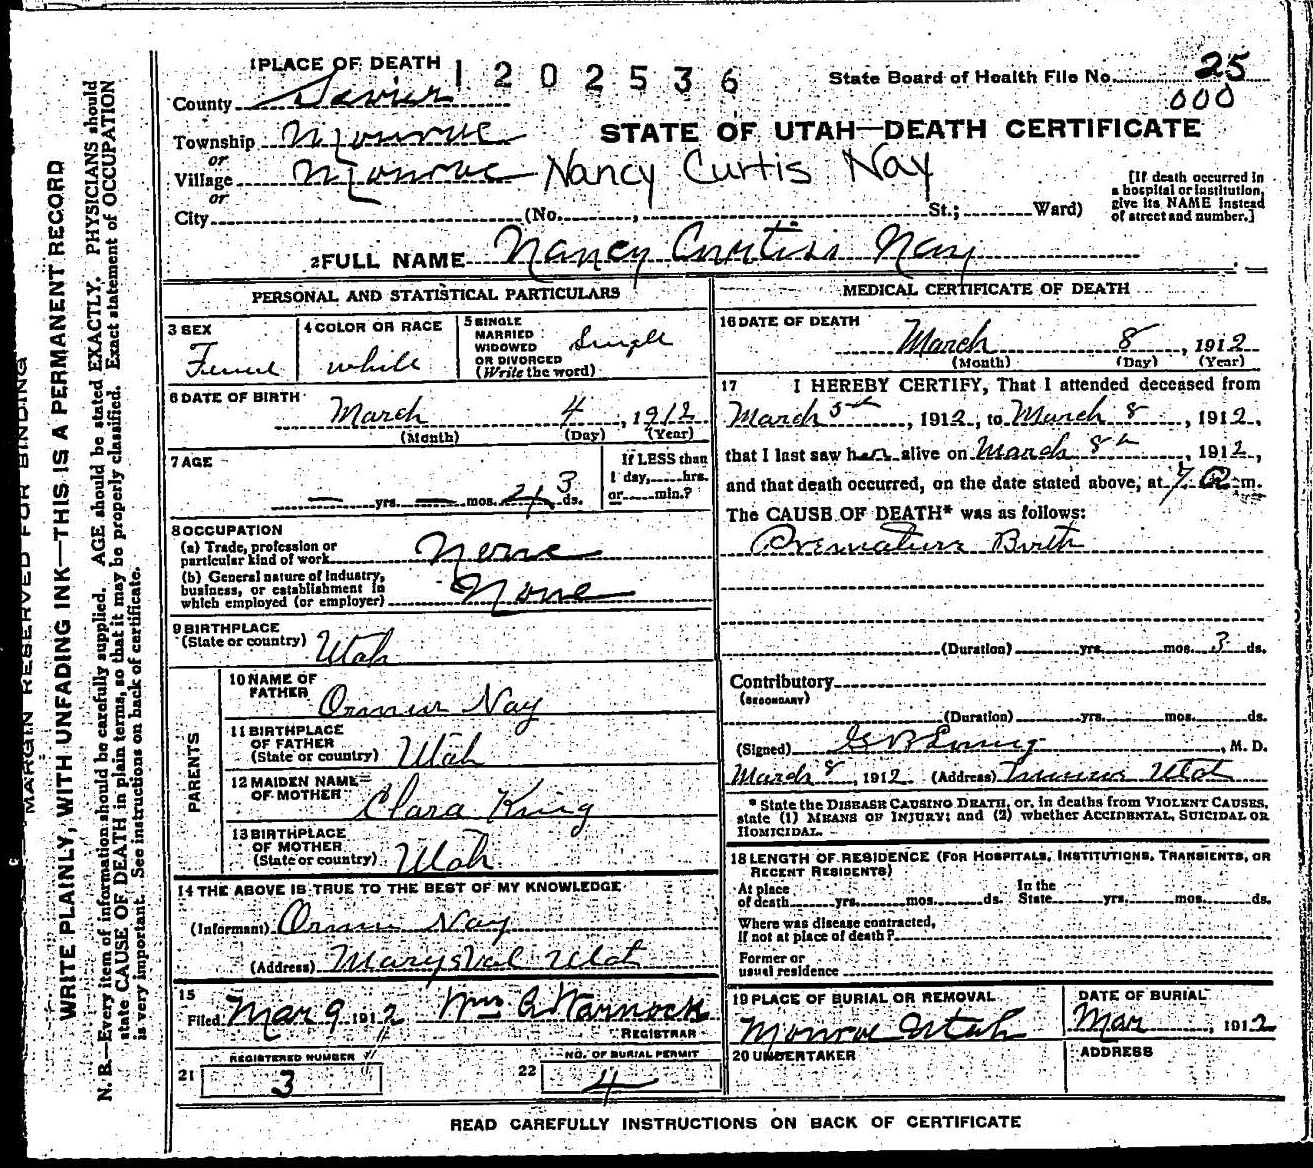 1 PLACE OF DEATH 1202536
State Board of Health File No. 25
000
County Sevier
Township Monroe
STATE OF UTAH—DEATH CERTIFICATE
or
Village Monroe Nancy Curtis Nay
or
City (No. , St.; Ward)
[If death occurred in
a hospital or institution,
give its NAME instead
of street and number.]
2 FULL NAME Nancy Curtiss Nay
PERSONAL AND STATISTICAL PARTICULARS
3 SEX
Female
4 COLOR OR RACE
white
5 SINGLE
MARRIED
WIDOWED
OR DIVORCED
(Write the word)
Single
6 DATE OF BIRTH
March 4, 1912
(Month) (Day) (Year)
7 AGE
— yrs. — mos. 3 ds.
If LESS than
1 day, hrs.
or min.?
8 OCCUPATION
(a) Trade, profession or
particular kind of work None
(b) General nature of Industry,
business, or establishment in
which employed (or employer) None
9 BIRTHPLACE
(State or country) Utah
PARENTS
10 NAME OF
FATHER Nay
11 BIRTHPLACE
OF FATHER
(State or country) Utah
12 MAIDEN NAME
OF MOTHER Clara King
13 BIRTHPLACE
OF MOTHER
(State or country) Utah
14 THE ABOVE IS TRUE TO THE BEST OF MY KNOWLEDGE
(Informant) Nay
(Address) Marysval Utah
15
Filed Mar 9 1912 Wm A Warnock
REGISTRAR
REGISTERED NUMBER
21 3
NO. OF BURIAL PERMIT
22 4
MEDICAL CERTIFICATE OF DEATH
16 DATE OF DEATH
March 8, 1912
(Month) (Day) (Year)
17 I HEREBY CERTIFY, That I attended deceased from
March 5th, 1912, to March 8, 1912,
that I last saw her alive on March 8th, 1912,
and that death occurred, on the date stated above, at 7 a. m.
The CAUSE OF DEATH* was as follows:
Premature Birth
(Duration) yrs. mos. 3 ds.
Contributory
(SECONDARY)
(Duration) yrs. mos. ds.
(Signed) , M. D.
March 8, 1912 (Address) Monroe Utah
* State the DISEASE CAUSING DEATH, or, in deaths from VIOLENT CAUSES,
state (1) MEANS OF INJURY; and (2) whether ACCIDENTAL, SUICIDAL OR
HOMICIDAL.
18 LENGTH OF RESIDENCE (FOR HOSPITALS, INSTITUTIONS, TRANSIENTS, OR
RECENT RESIDENTS)
At place
of death yrs. mos. ds.
In the
State yrs. mos. ds.
Where was disease contracted,
if not at place of death?
Former or
usual residence
19 PLACE OF BURIAL OR REMOVAL
Monroe Utah
DATE OF BURIAL
Mar , 1912
20 UNDERTAKER
ADDRESS
READ CAREFULLY INSTRUCTIONS ON BACK OF CERTIFICATE
MARGIN RESERVED FOR BINDING
WRITE PLAINLY, WITH UNFADING INK—THIS IS A PERMANENT RECORD
N. B.—Every item of information should be carefully supplied. AGE should be stated EXACTLY. PHYSICIANS should
state CAUSE OF DEATH in plain terms, so that it may be properly classified. Exact statement of OCCUPATION
is very important. See instructions on back of certificate.